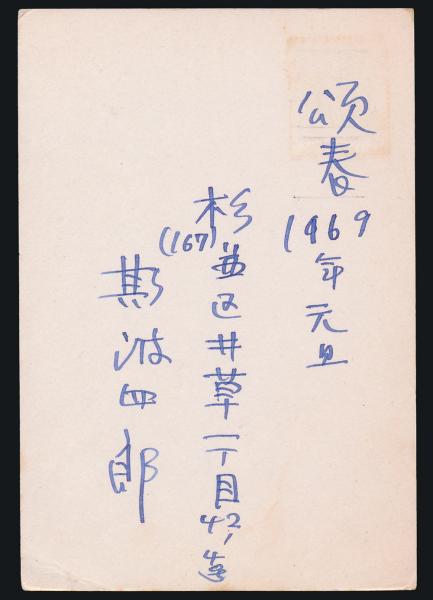 頌春
1969年元旦
杉並区井草一丁目42,4
(167)
斯波四郎